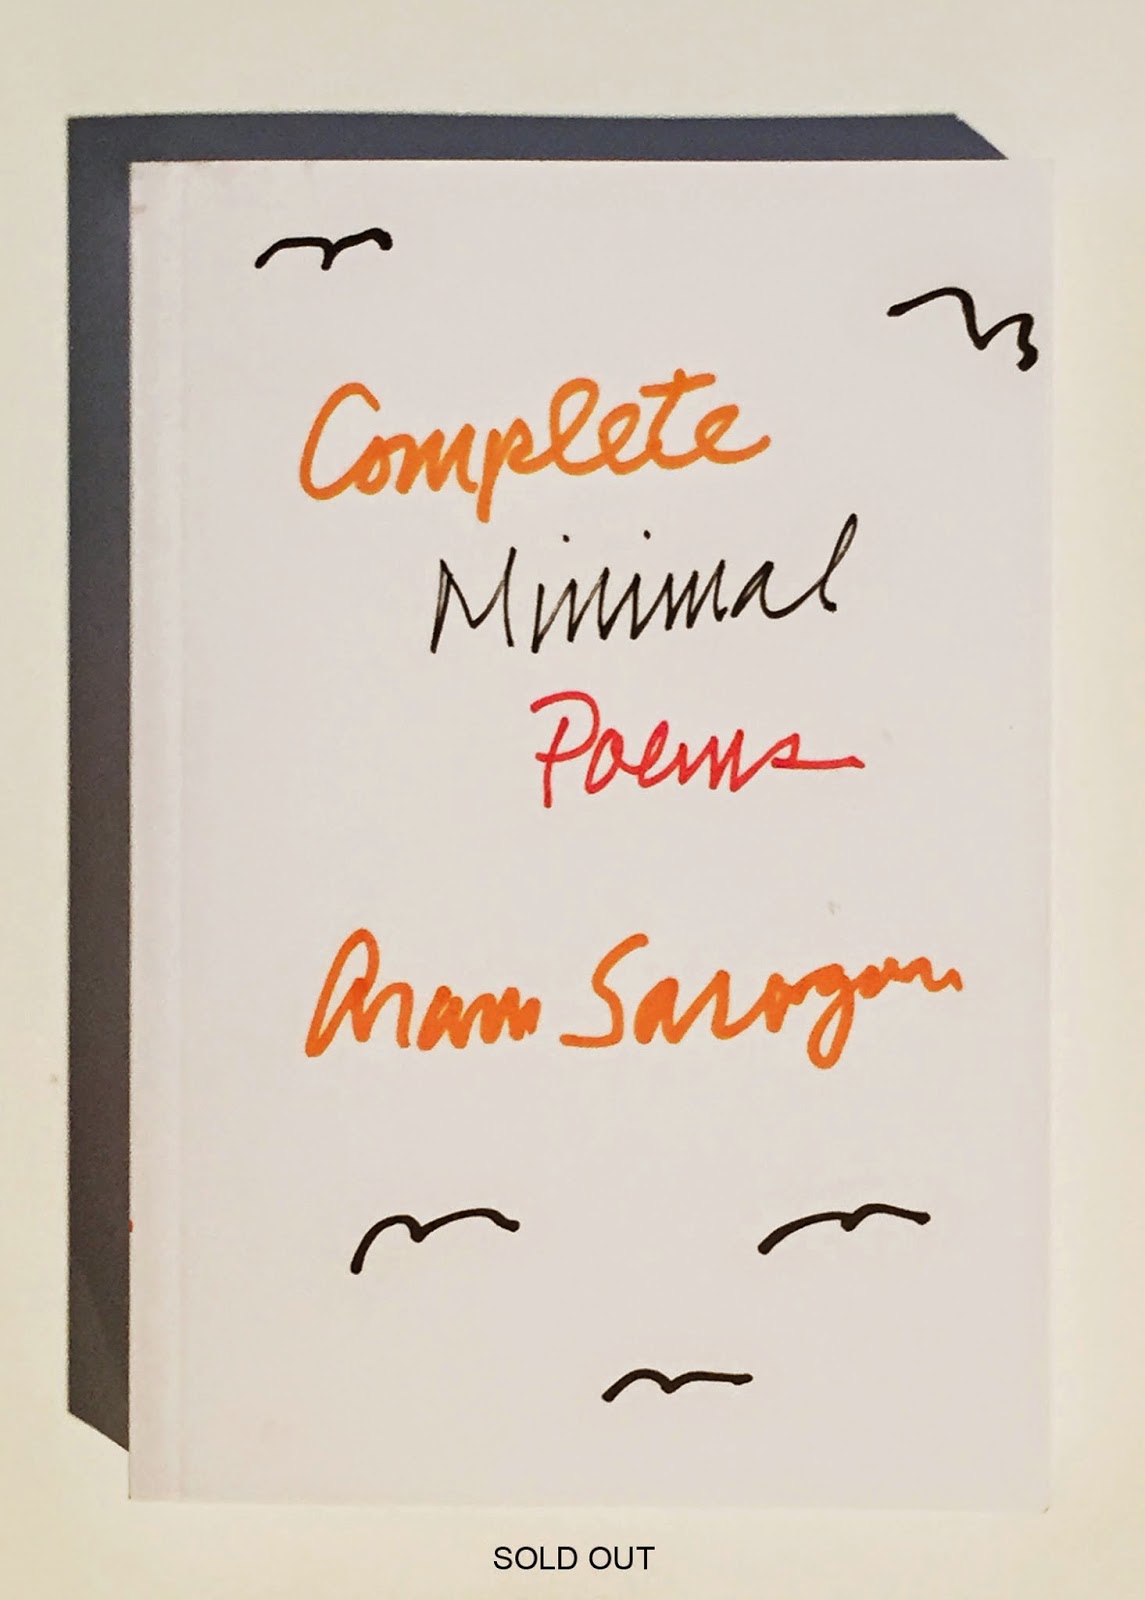 Complete
Minimal
Poems
Aram Saroyan
SOLD OUT